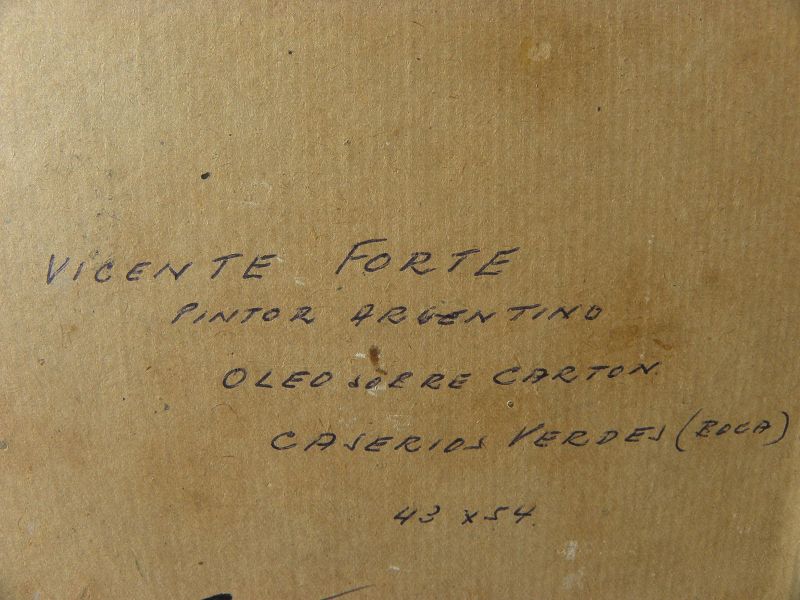 VICENTE FORTE
PINTOR ARGENTINO
OLEO SOBRE CARTON
CASERIOS VERDES (BOCA)
43 x 54